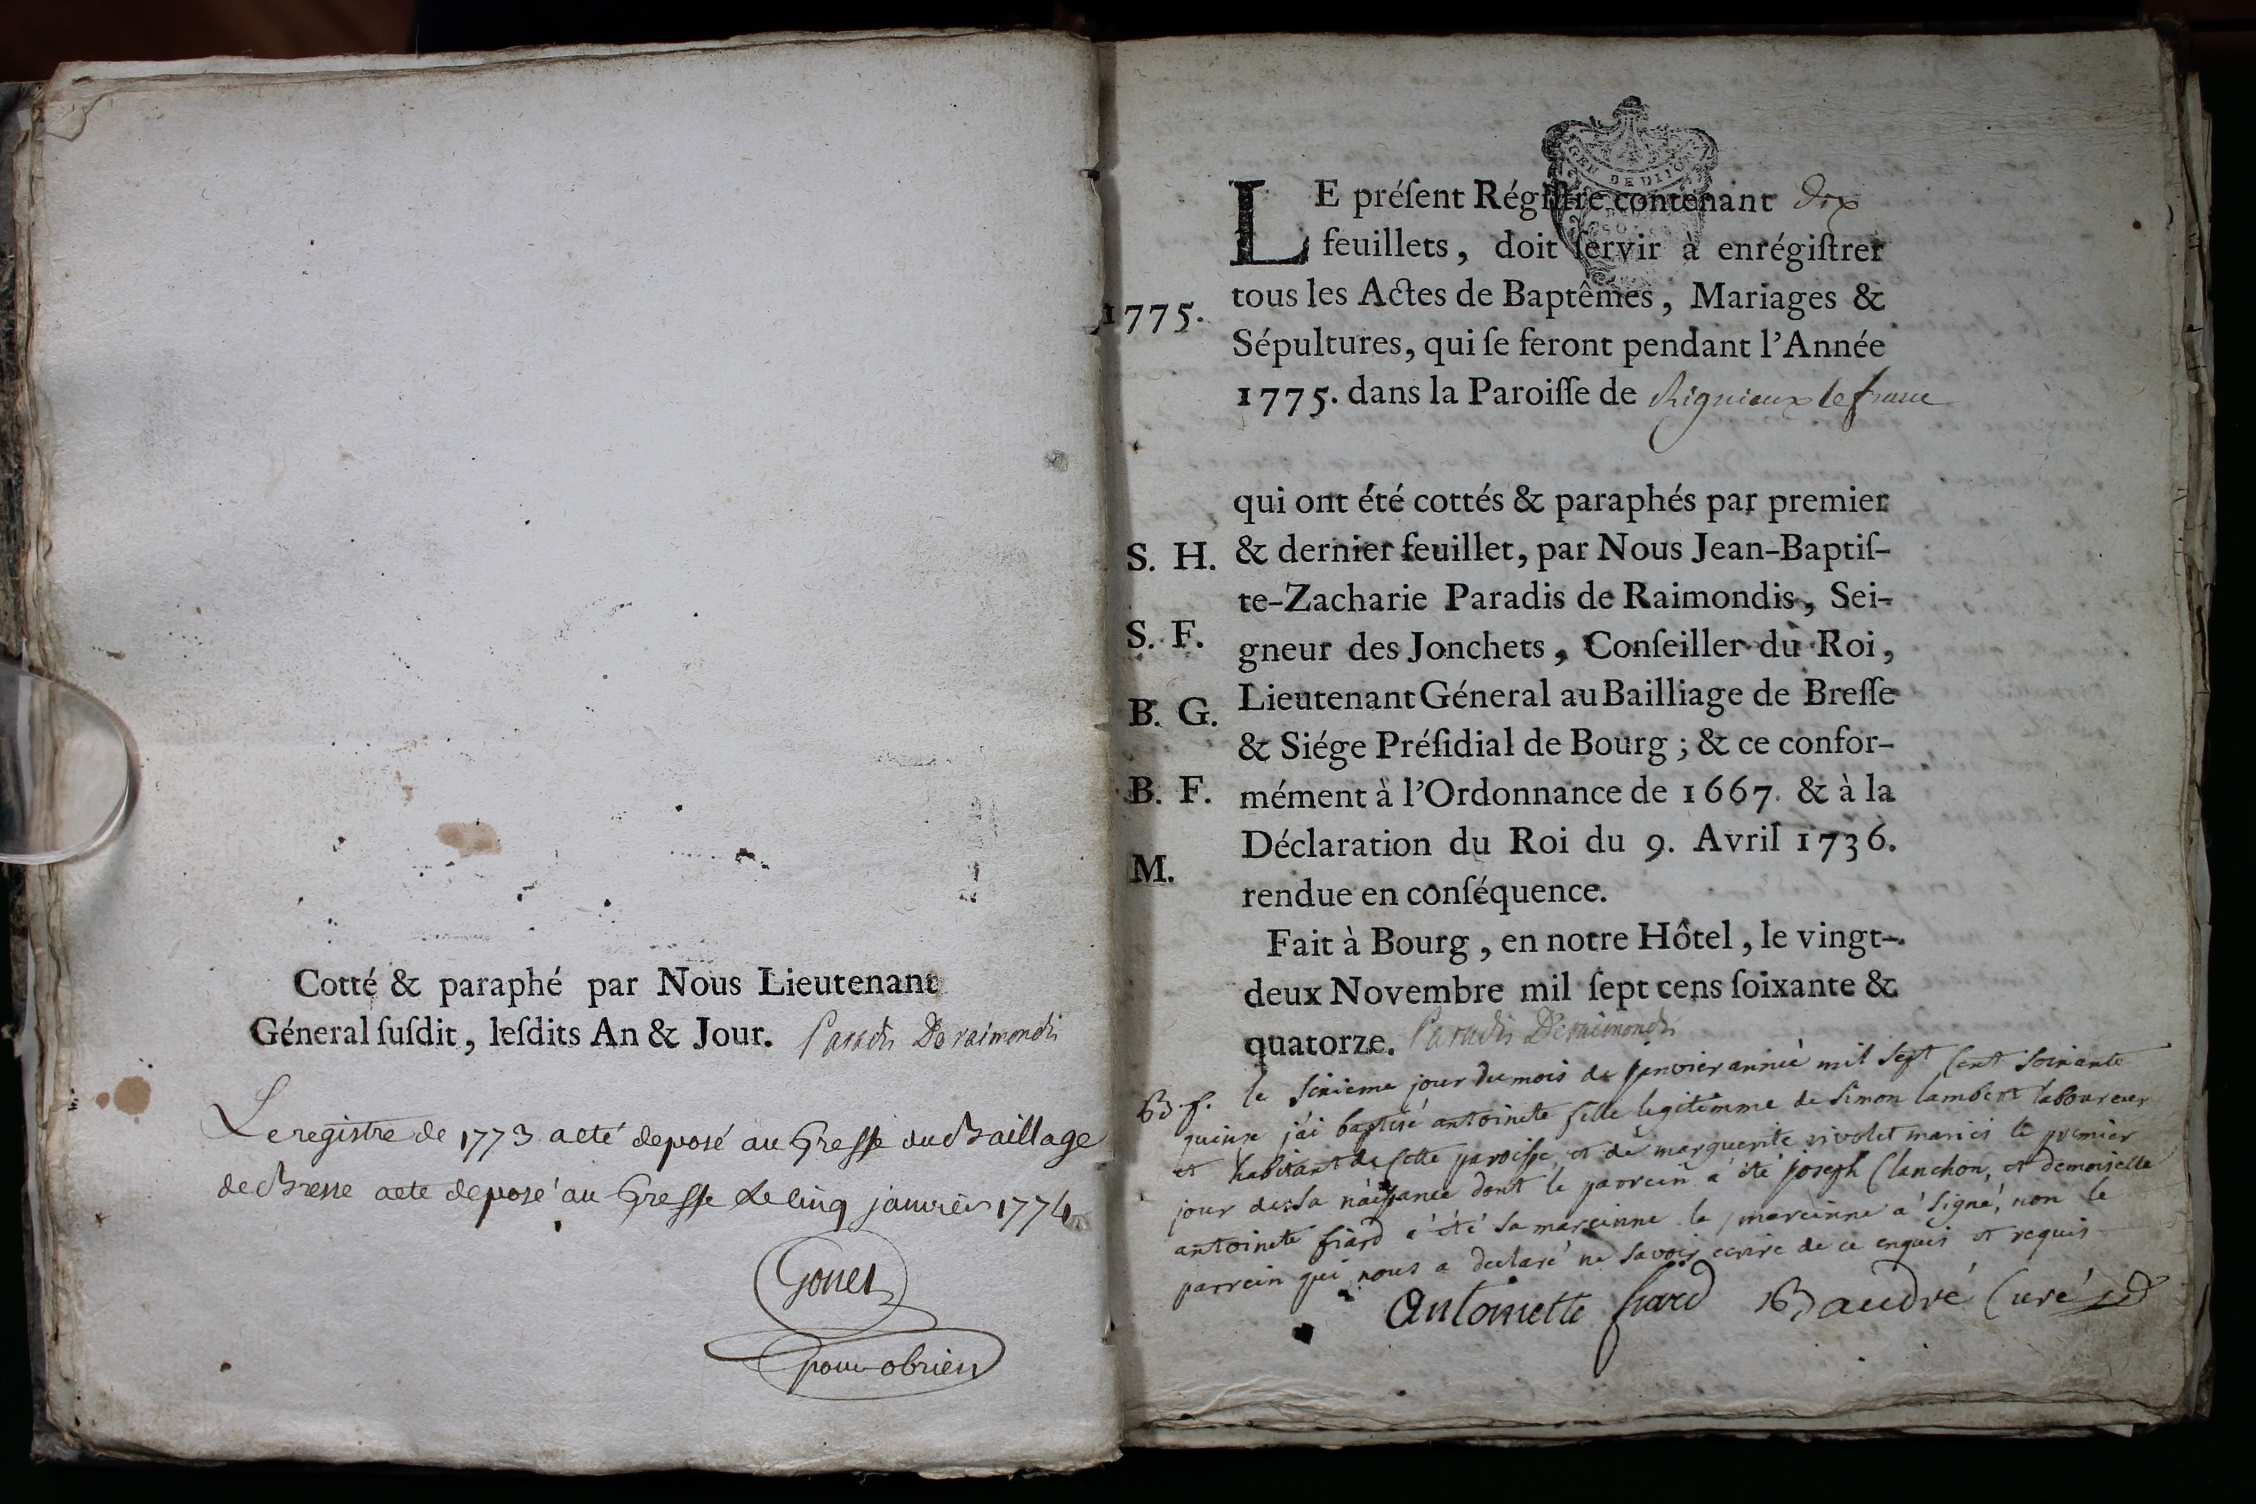 Cotté & paraphé par Nous Lieutenant
Géneral ſuſdit, leſdits An & Jour. Paradis Deraimondis
Le registre de 1773 a eté deposé au Greffe du Baillage
de Bresse a ete deposé au Greffe le cinq janvier 1774
Gonet
pour obrien
GEN DE DIJON
LE préſent Régiſtre contenant dix
feuillets, doit ſervir à enrégiſtrer
tous les Actes de Baptêmes, Mariages &
1775.
Sépultures, qui ſe feront pendant l'Année
1775. dans la Paroiſſe de Rignieux le franc
qui ont été cottés & paraphés par premier
S. H. & dernier feuillet, par Nous Jean-Baptiſ-
te-Zacharie Paradis de Raimondis, Sei-
S. F. gneur des Jonchets, Conſeiller du Roi,
B. G. Lieutenant Géneral au Bailliage de Breſſe
& Siége Préſidial de Bourg ; & ce confor-
B. F. mément à l'Ordonnance de 1667. & à la
Déclaration du Roi du 9. Avril 1736.
M. rendue en conſéquence.
Fait à Bourg, en notre Hôtel, le vingt-
deux Novembre mil ſept cens ſoixante &
quatorze. Paradis Deraimondis
B f. le sixieme jour du mois de janvier année mil sept cent soixante
quinze j'ai baptisé antoinete fille legitimme de simon lambert laboureur
et habitant de cette paroisse et de marguerite rivolet mariés le premier
jour de sa naissance dont le parrein a été joseph Clanchon, et demoiselle
antoinete fiard a été sa mareinne la mareinne a signé, non le
parrein qui nous a declaré ne savoir ecrire de ce enquis et requis
Antoinette fiard Baudré Curé